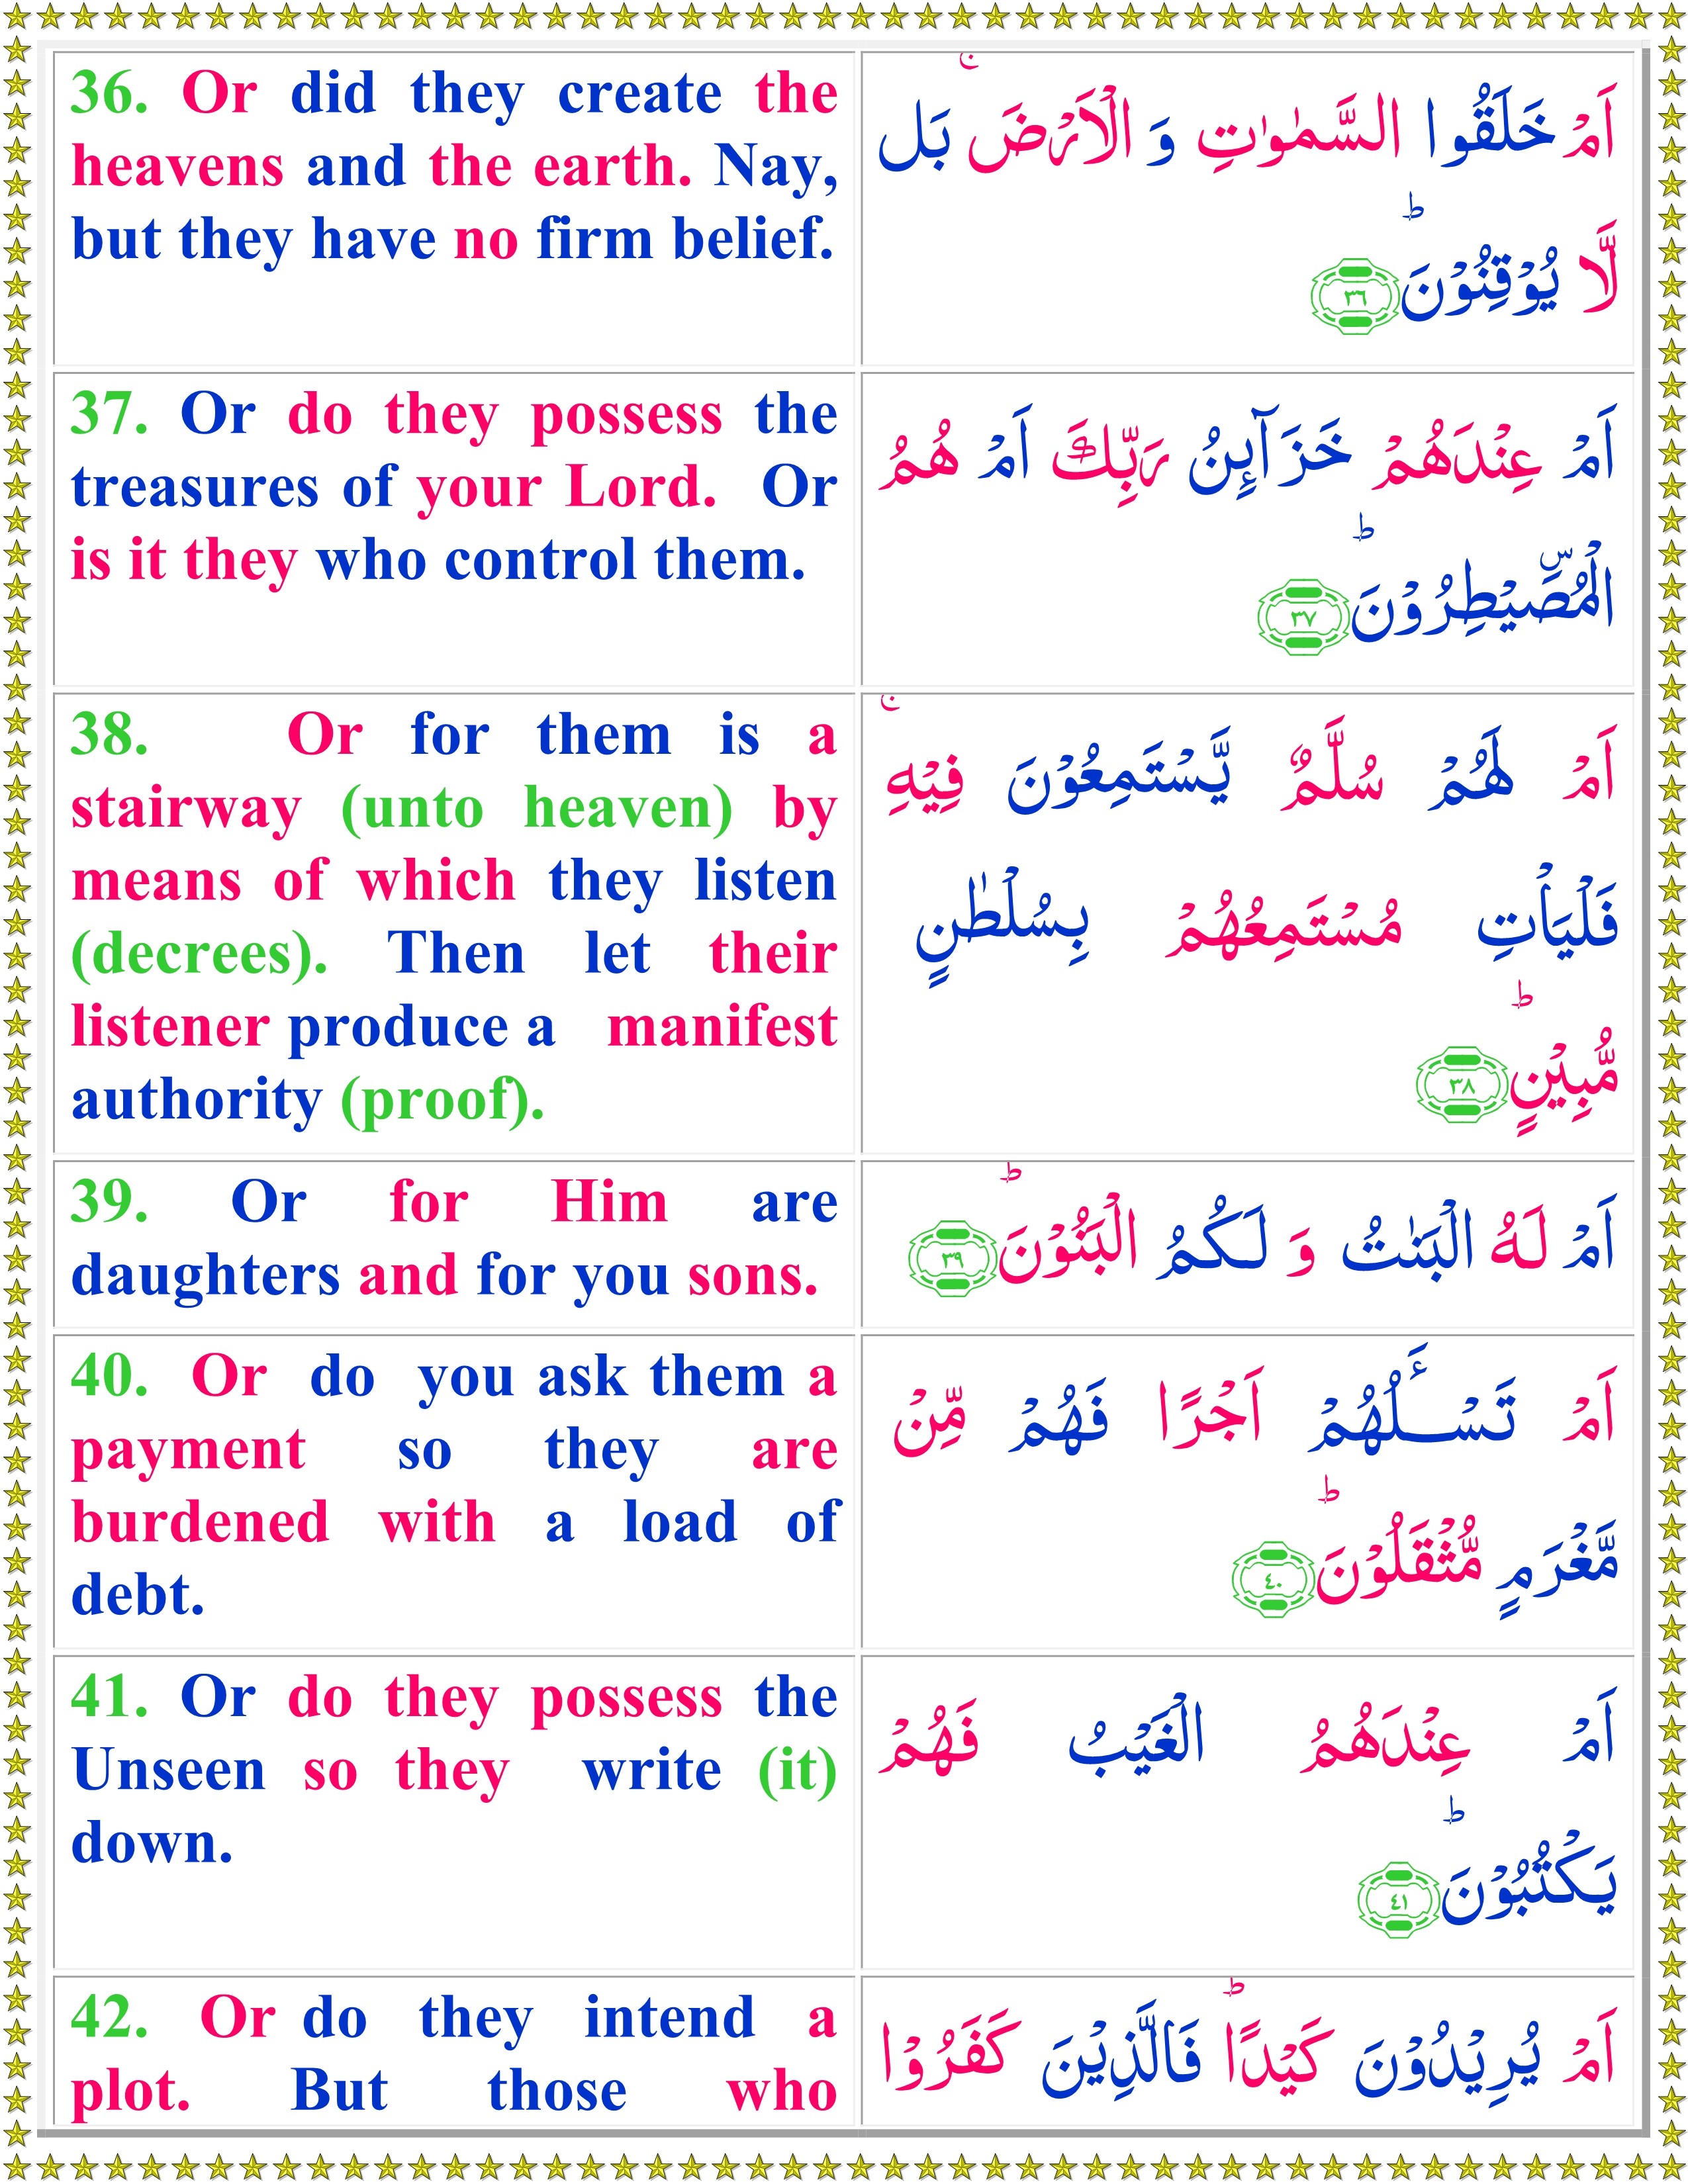 36. Or did they create the
heavens and the earth. Nay,
but they have no firm belief.
اَمۡ خَلَقُوا السَّمٰوٰتِ وَ الۡاَرۡضَ ۚ بَل
لَّا يُوۡقِنُوۡنَ ؕ ﴿۳۶﴾
37. Or do they possess the
treasures of your Lord. Or
is it they who control them.
اَمۡ عِنۡدَهُمۡ خَزَآٮِٕنُ رَبِّكَ اَمۡ هُمُ
الۡمُصَۜيۡطِرُوۡنَ ؕ ﴿۳۷﴾
38. Or for them is a
stairway (unto heaven) by
means of which they listen
(decrees). Then let their
listener produce a manifest
authority (proof).
اَمۡ لَهُمۡ سُلَّمٌ يَّسۡتَمِعُوۡنَ فِيۡهِ ۚ
فَلۡيَاۡتِ مُسۡتَمِعُهُمۡ بِسُلۡطٰنٍ
مُّبِيۡنٍ ؕ ﴿۳۸﴾
39. Or for Him are
daughters and for you sons.
اَمۡ لَهُ الۡبَنٰتُ وَ لَـكُمُ الۡبَنُوۡنَ ؕ ﴿۳۹﴾
40. Or do you ask them a
payment so they are
burdened with a load of
debt.
اَمۡ تَسۡــَٔلُهُمۡ اَجۡرًا فَهُمۡ مِّنۡ
مَّغۡرَمٍ مُّثۡقَلُوۡنَ ؕ ﴿۴۰﴾
41. Or do they possess the
Unseen so they write (it)
down.
اَمۡ عِنۡدَهُمُ الۡغَيۡبُ فَهُمۡ
يَكۡتُبُوۡنَ ؕ ﴿۴۱﴾
42. Or do they intend a
plot. But those who
اَمۡ يُرِيۡدُوۡنَ كَيۡدًا ؕ فَالَّذِيۡنَ كَفَرُوۡا